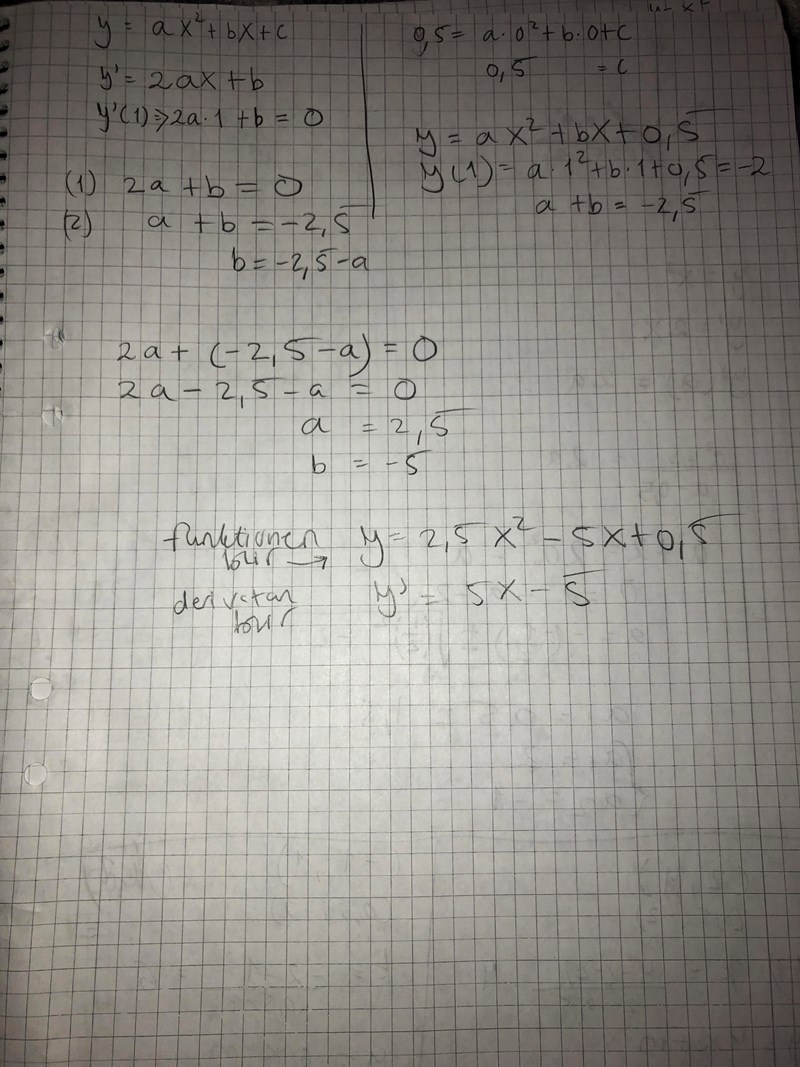 y = ax² + bx + c
y' = 2ax + b
y'(1) ⇒ 2a·1 + b = 0
(1) 2a + b = 0
(2) a + b = -2,5
b = -2,5 - a
0,5 = a·0² + b·0 + c
0,5 = c
y = ax² + bx + 0,5
y(1) = a·1² + b·1 + 0,5 = -2
a + b = -2,5
2a + (-2,5 - a) = 0
2a - 2,5 - a = 0
a = 2,5
b = -5
funktionen y = 2,5x² - 5x + 0,5
blir →
derivatan y' = 5x - 5
blir